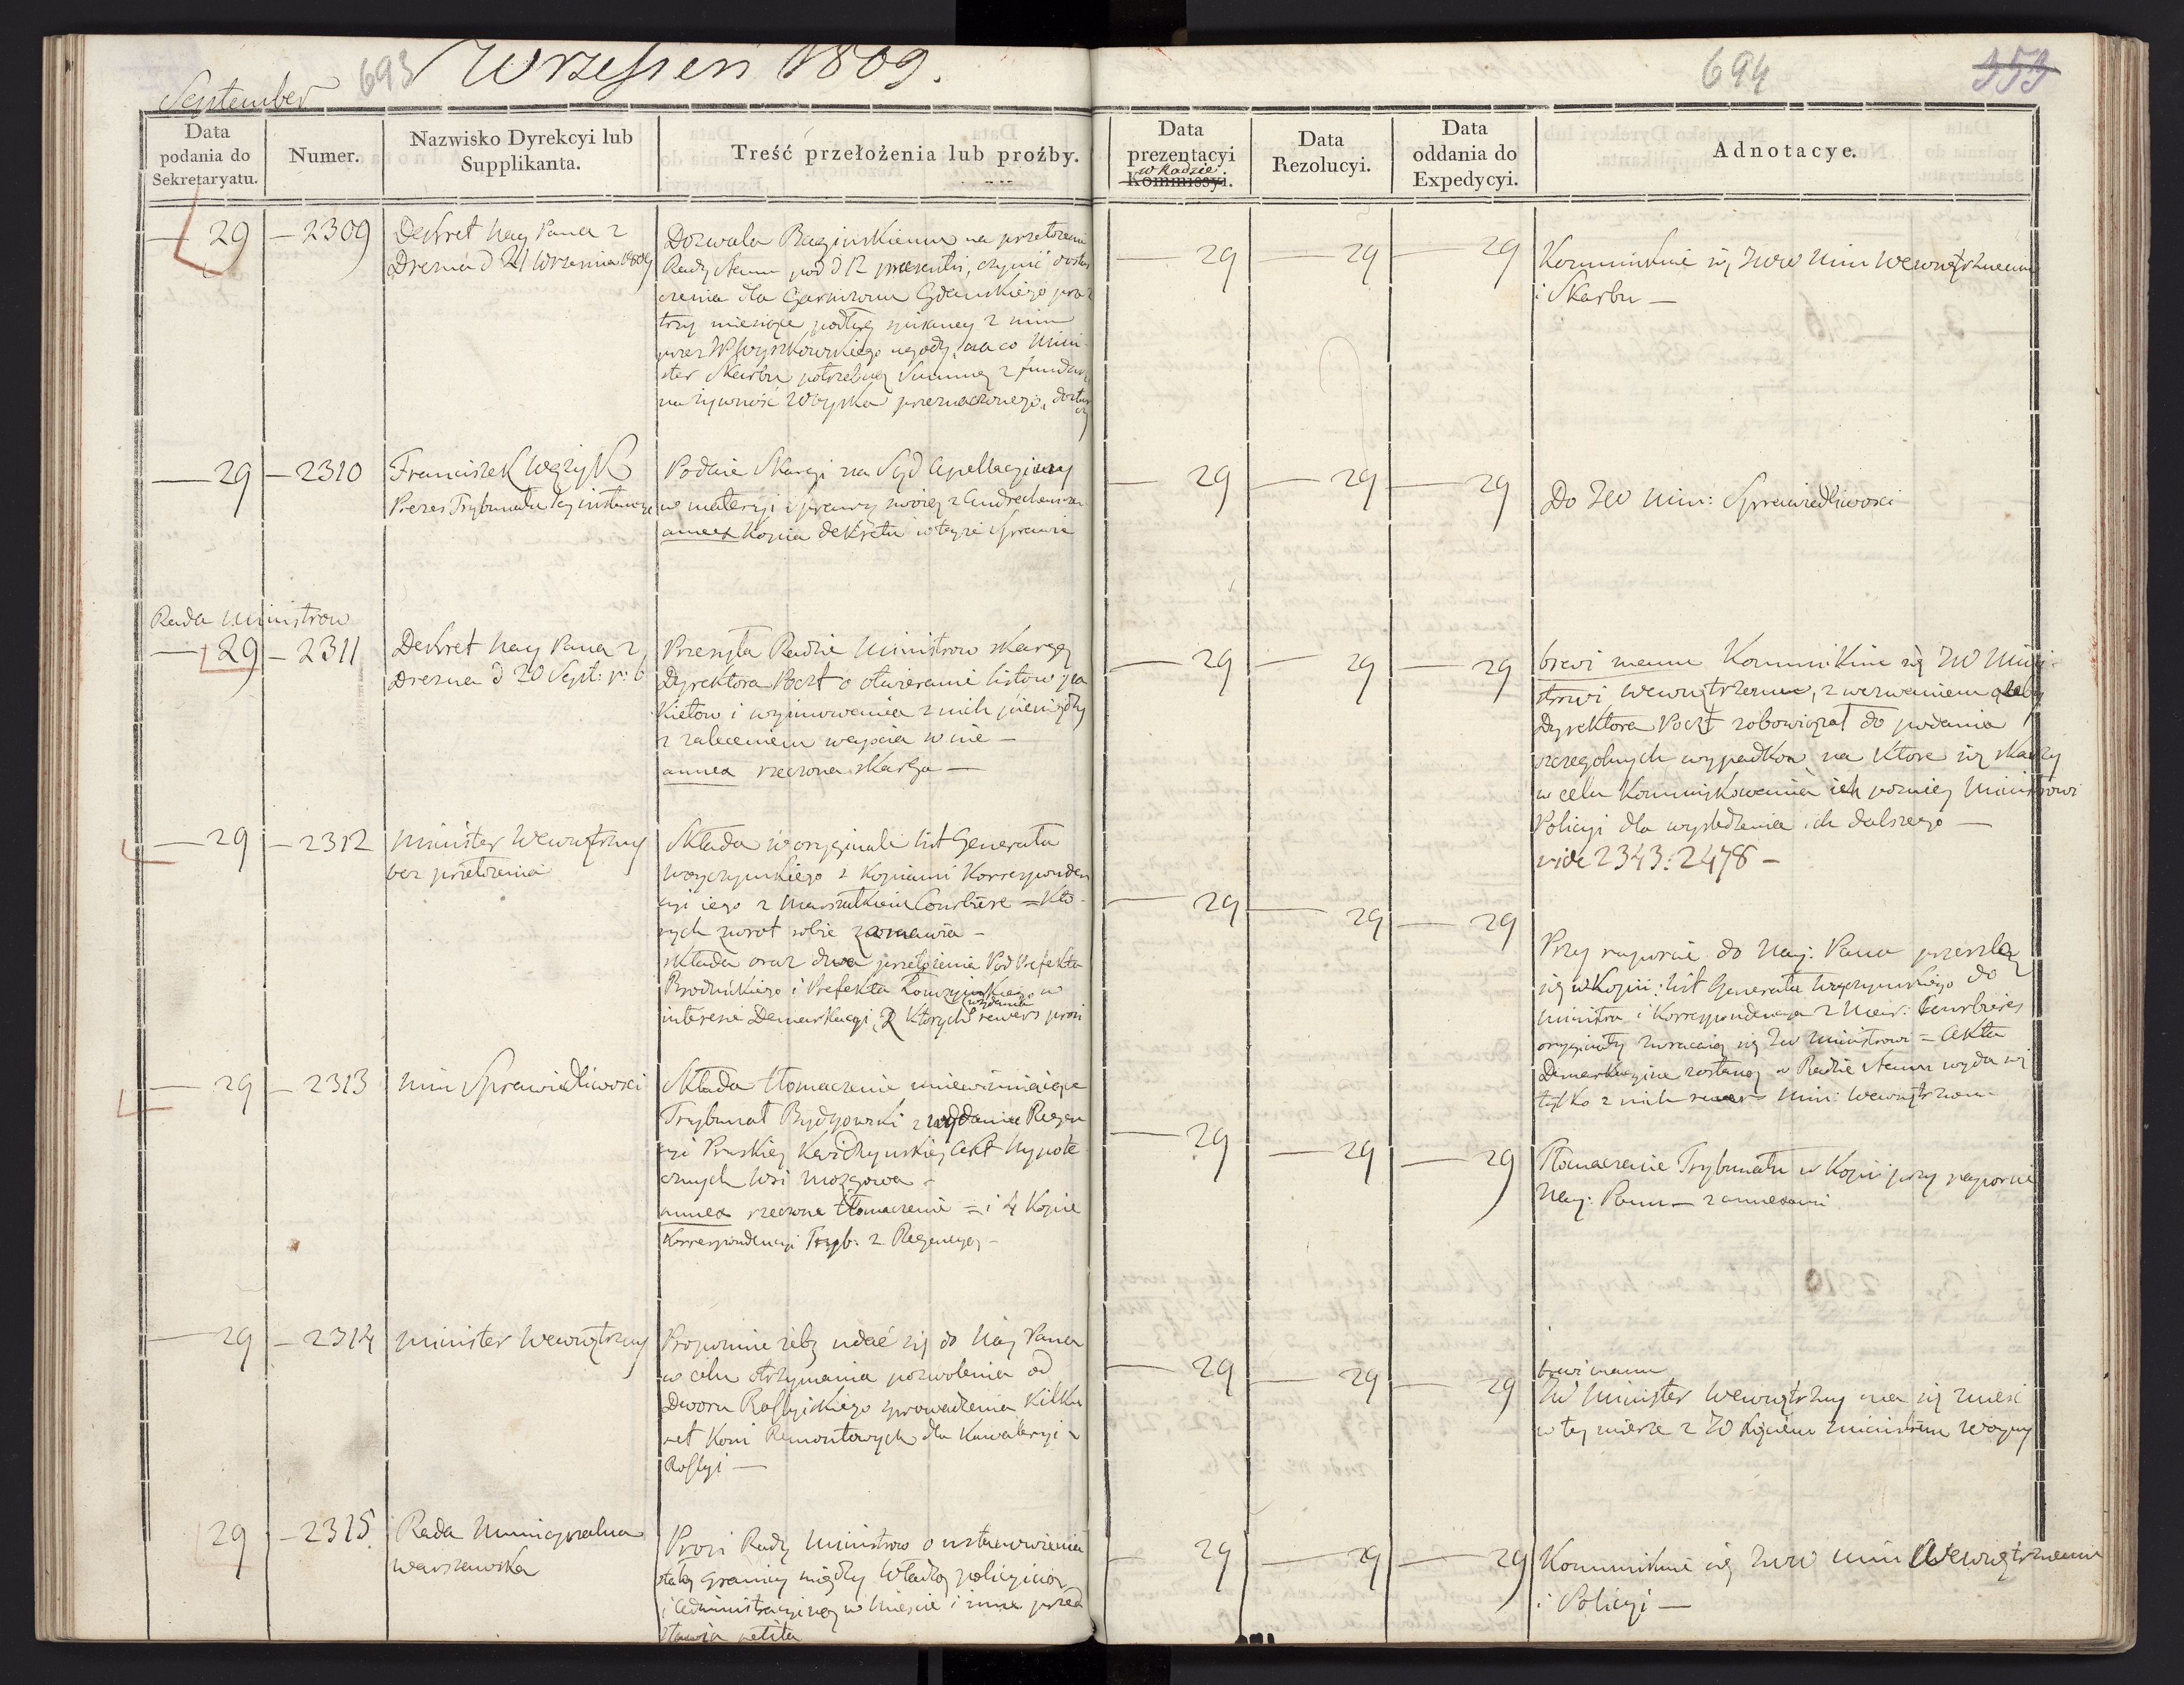 693 Wrzesień 1809.
694
353
September
Data podania do Sekretaryatu.
Numer.
Nazwisko Dyrekcyi lub Supplikanta.
Treść przełożenia lub proźby.
Data prezentacyi w Radzie Kommissyi.
Data Rezolucyi.
Data oddania do Expedycyi.
Adnotacye.
29 — 2309
Dekret Nay Pana z
Drezna d 21 Września 1809
Dozwala Bagińskiemu na przełożenie
Rady Stanu pod d 12 praesentis, czynić dostar
czenia dla Garnizonu Gdańskiego przez
trzy miesiące podług spisaney z nim
przez W Wyszkowskiego ugody, na co Mini
ster Skarbu potrzebną Summę z funduszu
na żywność Woyska przeznaczonego, dostar
czy
— 29 — 29 — 29
Kommunikuie się JWW Min Wewnętrznemu
i Skarbu —
— 29 — 2310
Franciszek Wężyk
Prezes Trybunału 1ey instancyi
Podaie Skargi na Sąd Apellacyiny
w materyi sprawy swoiey z
annex Kopia dekretu w teyże Sprawie
— 29 — 29 — 29
Do JW Min: Sprawiedliwości
Rada Ministrow
— 29 — 2311
Dekret Nay Pana z
Drezna d 20 Sept: r: b
Przesyła Radzie Ministrow skargę
Dyrektora Poczt o otwieranie listow pa
kietow i wyimowania z nich pieniędzy
z zaleceniem weyścia w nie —
annex rzeczona skarga —
— 29 — 29 — 29
brevi manu Kommunikuie się JW Mini-
strowi Wewnętrznemu, z wezwaniem ażeby
Dyrektora Poczt zobowiązał do podania
szczególnych wypadkow, na ktore się skarży
w celu Kommunikowania ich pozniey Ministrowi
Policyi dla wyśledzenia ich dalszego —
vide 2343: 2478 —
— 29 — 2312
Minister Wewnętrzny
bez przełożenia
Składa w oryginale list Generała
Woyczyńskiego z Kopiami Korresponden
cyi iego z Marszałkiem Courbiere = Kto-
rych zwrot sobie zamawia —
składa oraz dwa przełożenia Pod Prefekta
i Prefekta Łomżyńskiego w
interesie Demarkacyi, z Ktorych wydania rewers prosi
— 29 — 29 — 29
Przy raporcie do Nay: Pana przeszle
się w Kopii: list Generała Woyczyńskiego do
Ministra i Korrespondencya z Mar: Courbieres
oryginały zwracaią się JW Ministrowi = Akta
Demarkacyine zostaną w Radzie Stanu wyda się
tylko z nich rewers Min: Wewnętrznem
— 29 — 2313
Min Sprawiedliwości
Składa tłomaczenie uniewinniaiące
Trybunał Bydgowski z wydania Regen
cyi Pruskiey Kwidzyńskiey Akt Hypote
cznych Wsi Mozgowa —
annex rzeczone tłomaczenie = i 4 Kopie
Korrespondencyi Tryb: z Regencyą —
— 29 — 29 — 29
Tłomaczenie Trybunału w Kopii przy raporcie
Nay: Panu — z annexami
— 29 — 2314
Minister Wewnętrzny
Proponuie żeby udać się do Nay Pana
w celu otrzymania pozwolenia od
Dworu Rossyiskiego sprowadzenia kilku
set Koni Remontowych dla Kawaleryi z
Rossyi —
— 29 — 29 — 29
brevi manu
JW Minister Wewnętrzny ma się znieść
w tey mierze z JO Xięciem Ministrem Woyny
29 — 2315
Rada Municypalna
Warszawska
Prosi Rady Ministrow o ustanowienie
stałey granicy między Władzą policyiną
i administracyiną w Mieście i inne przed
stawia petita
— 29 — 29 — 29
Kommunikuie się JWW Min Wewnętrznemu
i Policyi —